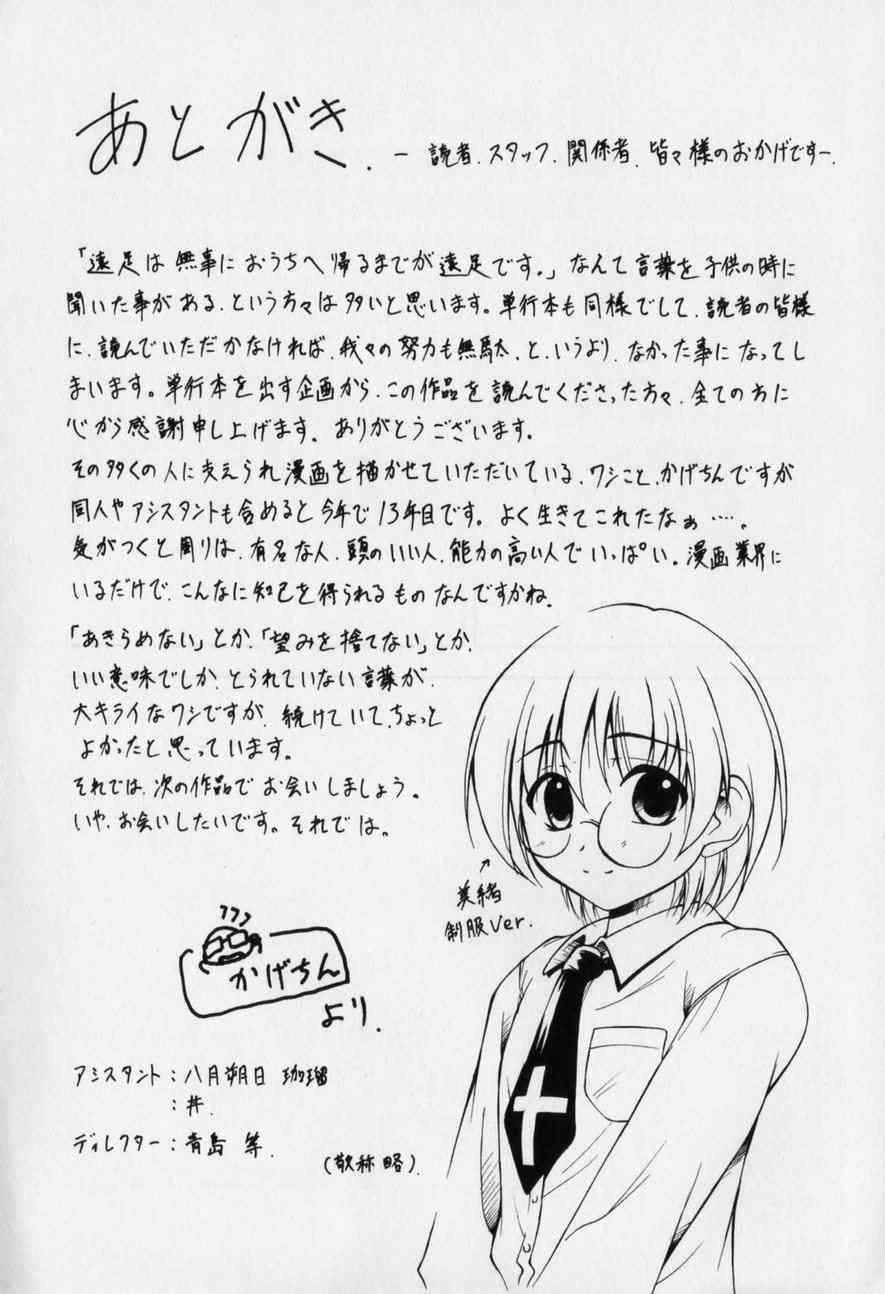 あとがき. ー 読者、スタッフ、関係者、皆々様のおかげですー.
「遠足は無事におうちへ帰るまでが遠足です。」なんて言葉を子供の時に
聞いた事がある、という方々は多いと思います。単行本も同様でして、読者の皆様
に、読んでいただかなければ、我々の努力も無駄、と、いうより、なかった事になってし
まいます。単行本を出す企画から、この作品を読んでくださった方々、全ての方に
心から感謝申し上げます。ありがとうございます。
その多くの人に支えられ漫画を描かせていただいている、ワシこと、かげちんですが
同人やアシスタントも含めると今年で13年目です。よく生きてこれたなぁ….。
気がつくと周りは、有名な人、頭のいい人、能力の高い人でいっぱい。漫画業界に
いるだけで、こんなに知己を得られるものなんですかね。
「あきらめない」とか、「望みを捨てない」とか、
いい意味でしか、とられていない言葉が、
大キライなワシですが、続けていて、ちょっと
よかったと思っています。
それでは、次の作品でお会いしましょう。
いや、お会いしたいです。それでは。
美緒
制服Ver.
かげちん
より.
アシスタント：八月朔日 珈瑠
：井.
ディレクター：青島 等.
(敬称略).